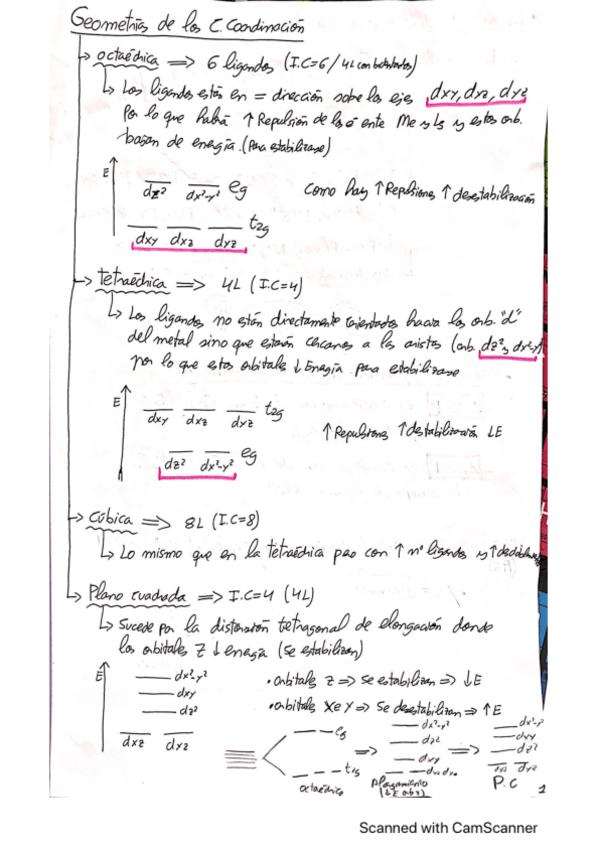 Geometrías de los C. Coordinación
octaédrica => 6 ligandos (I.C=6 / 4L con bidentados)
Los ligandos están en = dirección sobre los ejes dxy, dxz, dyz
Por lo que habrá ↑ Repulsión de los e⁻ ente Me y Ls y estos orb.
bajan de energía. (Para estabilizase)
E
dz² dx²-y² eg
Como hay ↑ Repulsiones ↑ desestabilización
t2g
dxy dxz dyz
tetraédrica => 4L (I.C=4)
Los ligandos no están directamente orientados hacia los orb. "d"
del metal sino que estarán cercanos a las aristas (orb. dz² y dx²-y²)
por lo que estos orbitales ↓ Energía para estabilizase
E
t2g
dxy dxz dyz
↑ Repulsiones ↑ destabilización ↓E
eg
dz² dx²-y²
Cúbica => 8L (I.C=8)
Lo mismo que en la tetraédrica pero con ↑ nº ligandos y ↑
Plano cuadrada => I.C=4 (4L)
Sucede por la distorsión tetragonal de elongación donde
los orbitales Z ↓ energía (se estabilizan)
E
dx²-y²
dxy
dz²
dxz dyz
• orbitales z => se estabilizan => ↓E
• orbitales X e Y => Se desestabilizan => ↑E
eg
t2g
octaédrico
=>
dx²-y²
dz²
dxy
dxz dyz
=>
dx²-y²
dxy
dz²
dxz dyz
P.C
1
Scanned with CamScanner